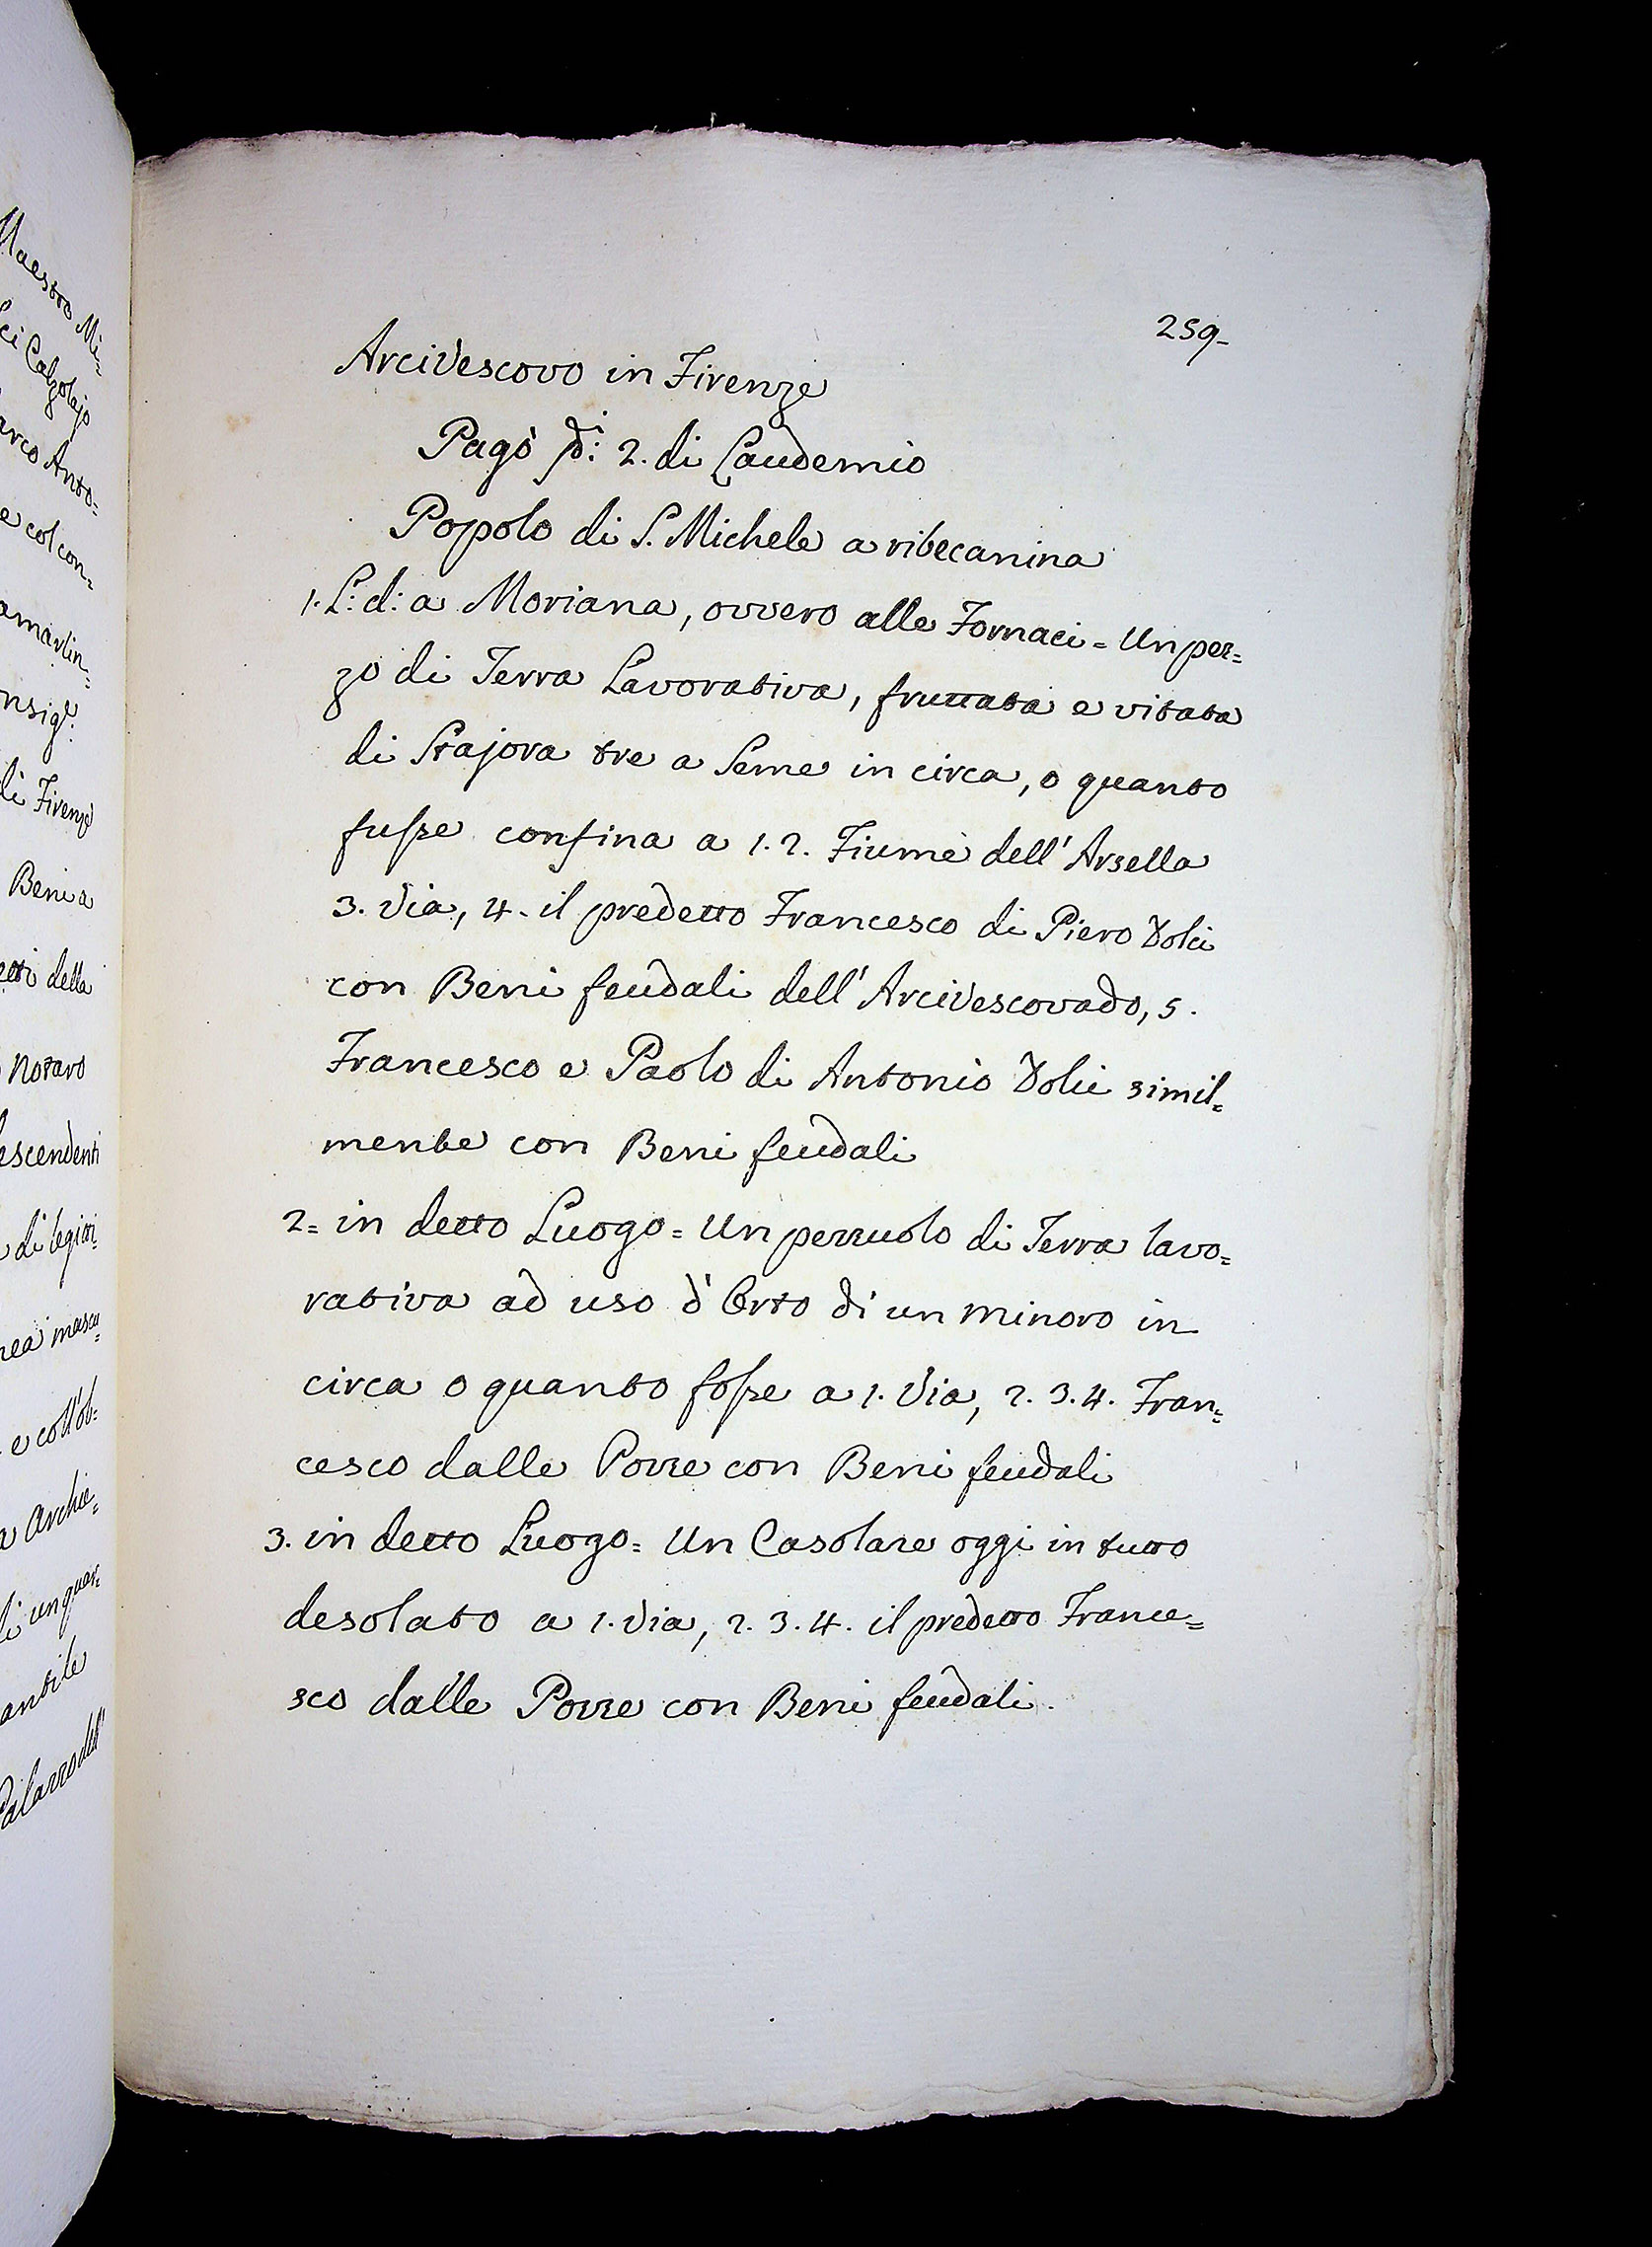 Maestro Mi=
ci Calzolajo
arco Anto=
e col con=
amarlin=
nsig.e
di Firenze
Beni a
etti della
Notaro
escendenti
di legitti=
nea mascu=
e coll'ob=
a Archie=
di un quar=
antile
Palazzo dell'
259-
Arcivescovo in Firenze
Pagò 2. di Laudemio
Popolo di S. Michele a ribecanina
1. L: d: a Moriana, ovvero alle Fornaci = Un pez=
zo di Terra Lavorativa, fruttata e vitata
di Stajora tre a Seme in circa, o quanto
fusse confina a 1. 2. Fiume dell' Arsella
3. Via, 4. il predetto Francesco di Piero Dolci
con Beni feudali dell' Arcivescovado, 5.
Francesco e Paolo di Antonio Dolci simil=
mente con Beni feudali
2= in detto Luogo = Un pezzuolo di Terra lavo=
rativa ad uso d' Orto di un minoro in
circa o quanto fosse a 1. Via, 2. 3. 4. Fran=
cesco dalle Pozze con Beni feudali
3. in detto Luogo = Un Casolare oggi in tutto
desolato a 1. Via, 2. 3. 4. il predetto France=
sco dalle Pozze con Beni feudali.